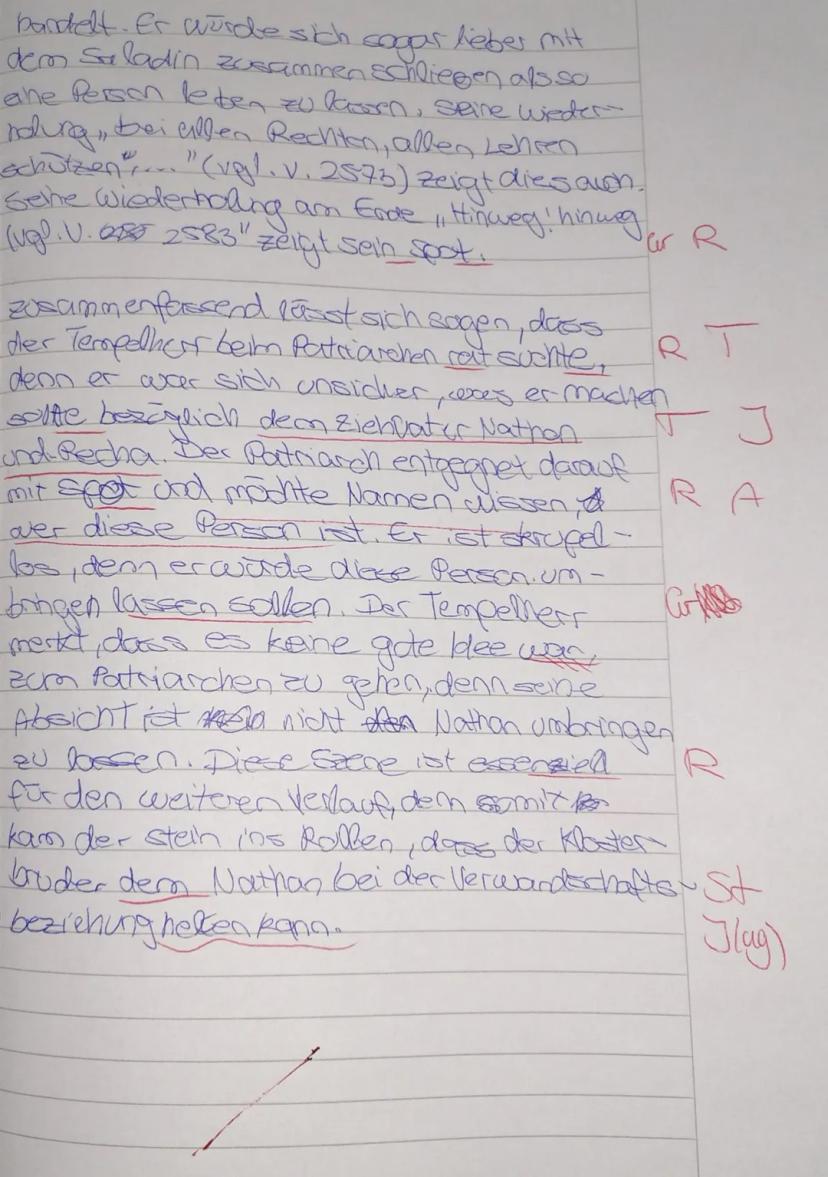 handelt. Er würde sich sogar lieber mit
dem Saladin zusammenschließen als so
eine Person leben zu lassen, seine Wieder-
holung „bei allen Rechten, allen Lehren
schützen“,..." (vgl. V. 2573) zeigt dies auch.
Seine Wiederholung am Ende „Hinweg! hinweg
(vgl. V. 2583" zeigt sein spot. Gr R
zusammenfassend lässt sich sagen, dass
der Tempelherr beim Patriarchen rat suchte, R T
denn er war sich unsicher, was er machen
sollte bezüglich dem Ziehvater Nathan T J
und Recha. Der Patriarch entgegnet darauf
mit spot und möchte Namen wissen, R A
wer diese Person ist. Er ist skrupel-
los, denn er würde diese Person um-
bringen lassen sollen. Der Tempelherr Gr
merkt, dass es keine gute Idee war,
zum Patriarchen zu gehen, denn seine
Absicht ist nicht Nathan umbringen
zu lassen. Diese Szene ist essenziell R
für den weiteren Verlauf, denn somit
kam der stein ins Rollen, dass der Kloster-
bruder dem Nathan bei der Verwandschafts- St
beziehung helfen kann. J(ug)